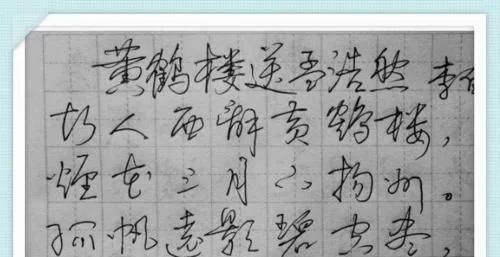 黄鹤楼送孟浩然 李白
故人西辞黄鹤楼,
煙花三月下扬州。
孤帆遠影碧空尽,